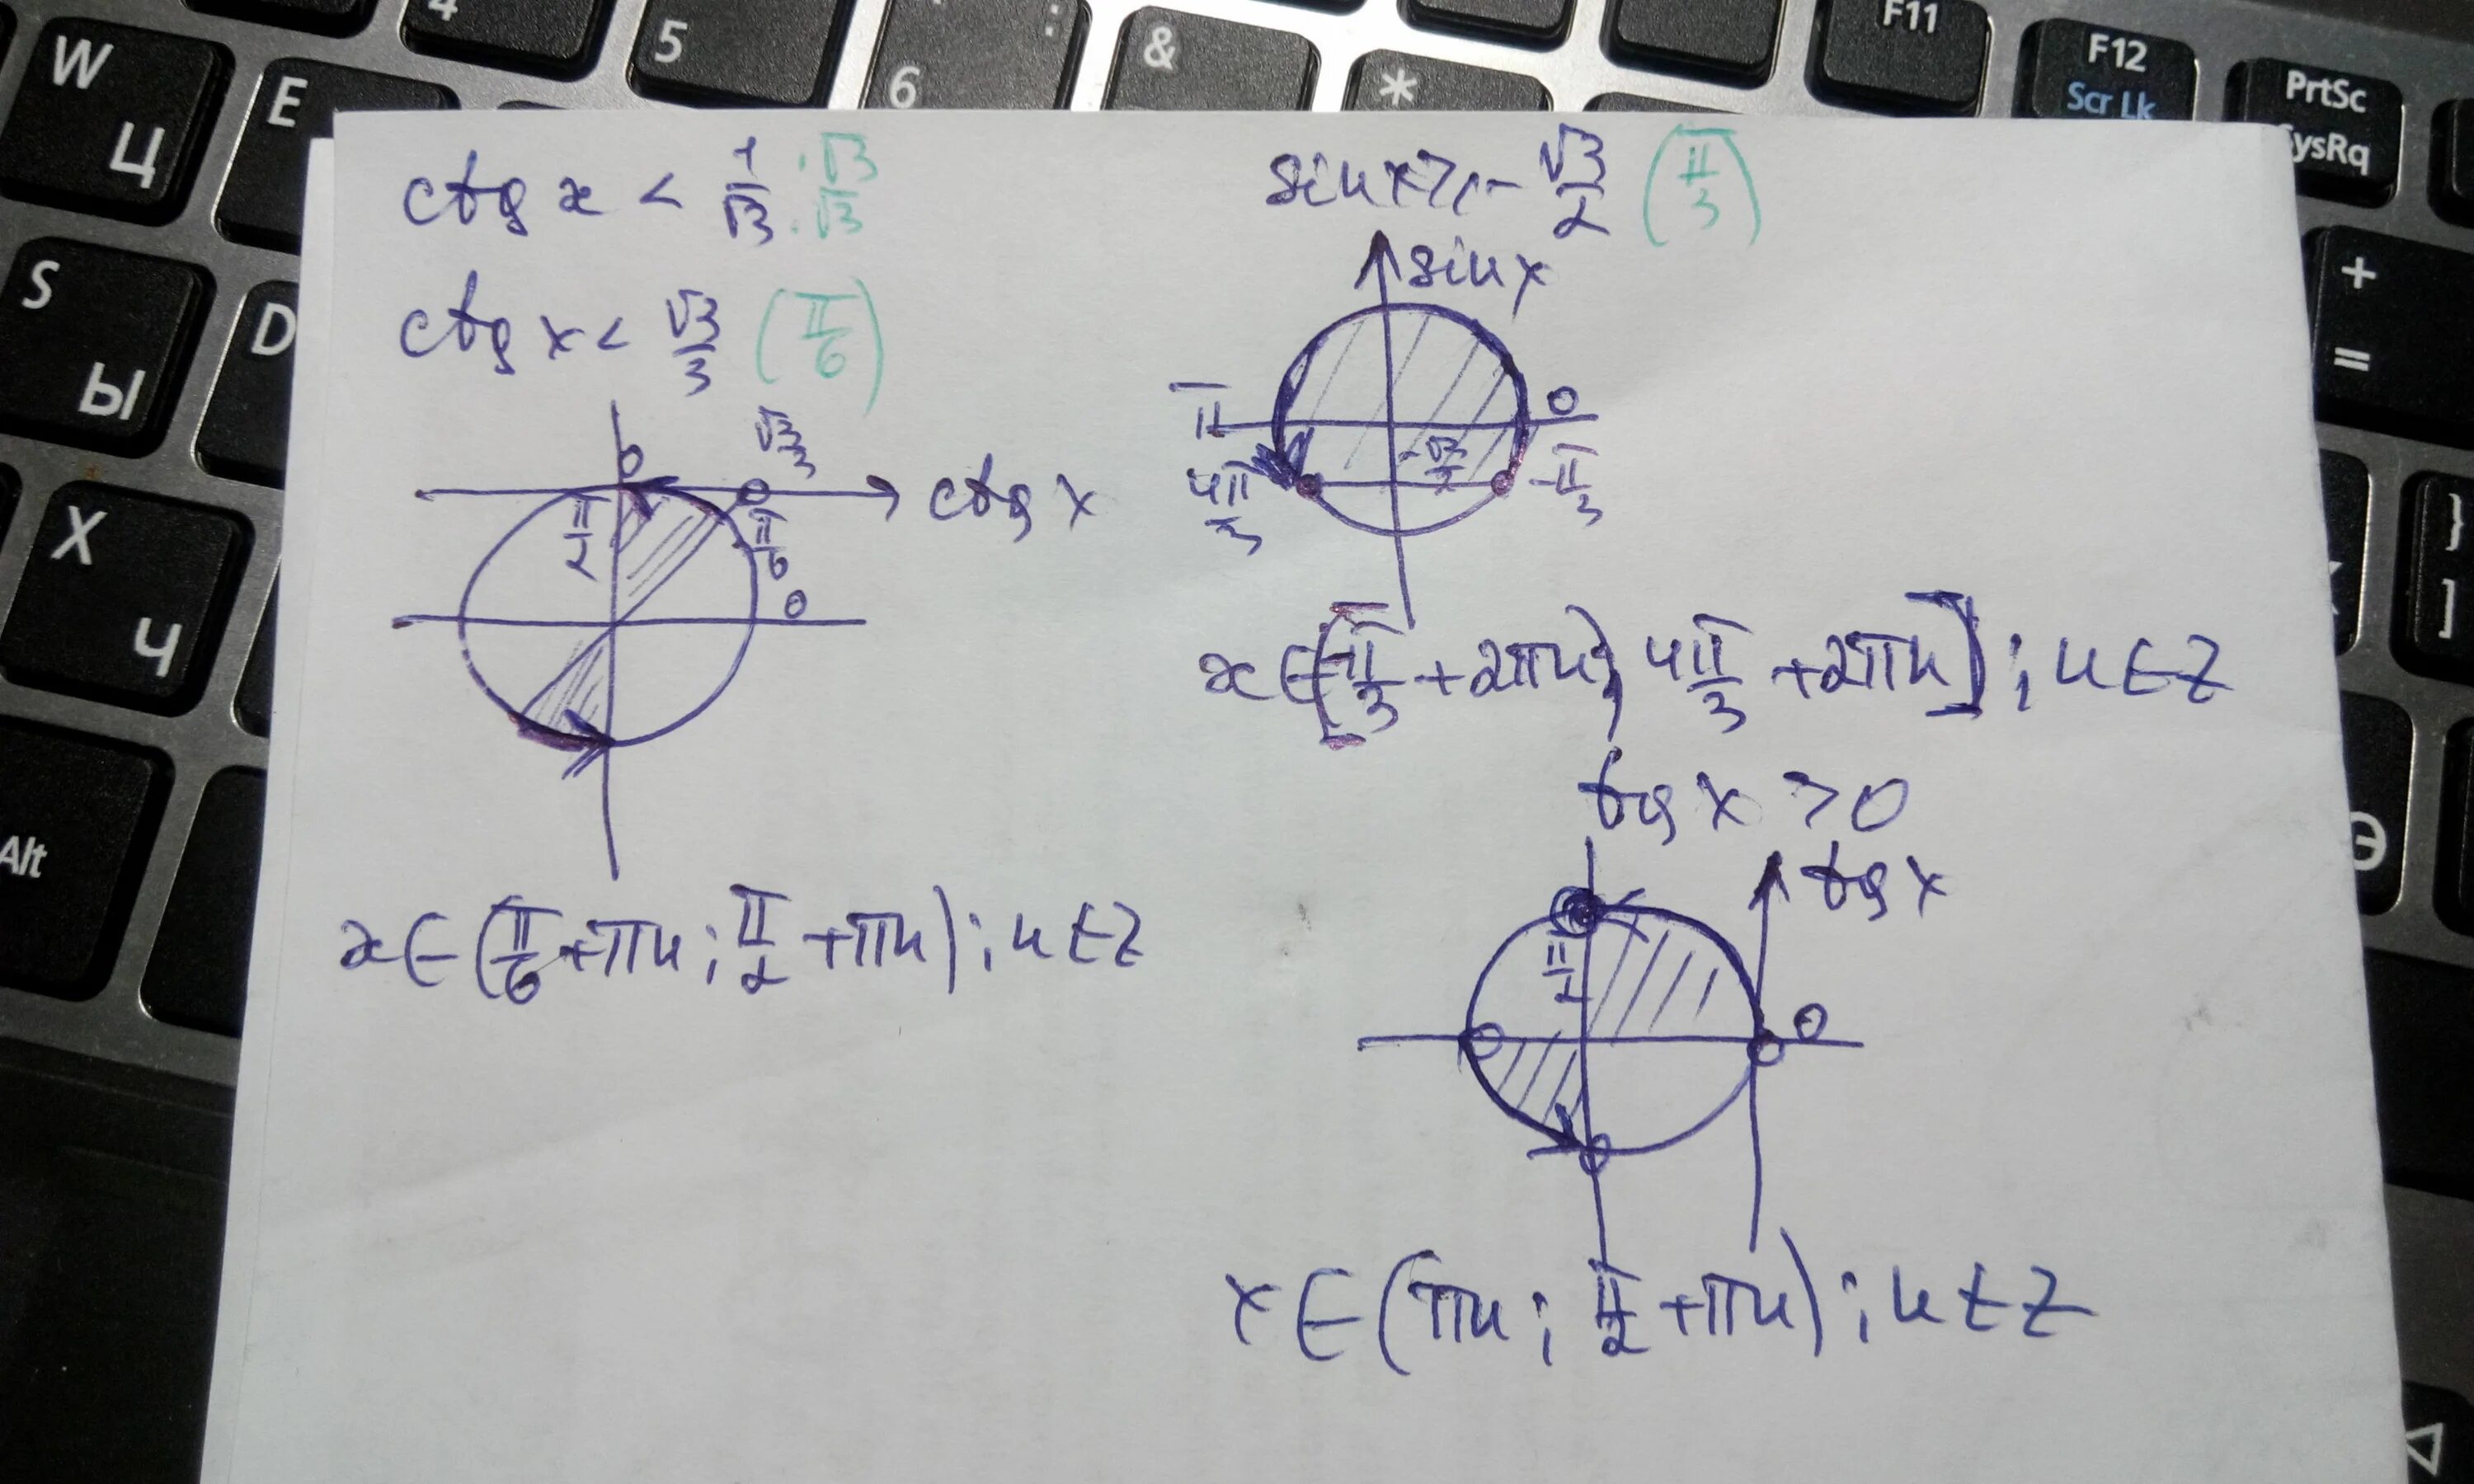 4
5
6
&
*
F11
F12
Scr Lk
PrtSc
SysRq
W
Ц
E
S
Ы
D
X
Ч
Alt
+
=
}
]
Э
ctg x < 1/√3 · √3/√3
ctg x < √3/3 (π/6)
0
√3/3
ctg x
π/2
π/6
0
x ∈ (π/6 + πn ; π/2 + πn) ; n ∈ Z
sin x ≥ - √3/2 (π/3)
sin x
π
0
-√3/2
4π/3
-π/3
x ∈ [-π/3 + 2πn ; 4π/3 + 2πn] ; n ∈ Z
tg x > 0
tg x
π/2
0
x ∈ (πn ; π/2 + πn) ; n ∈ Z